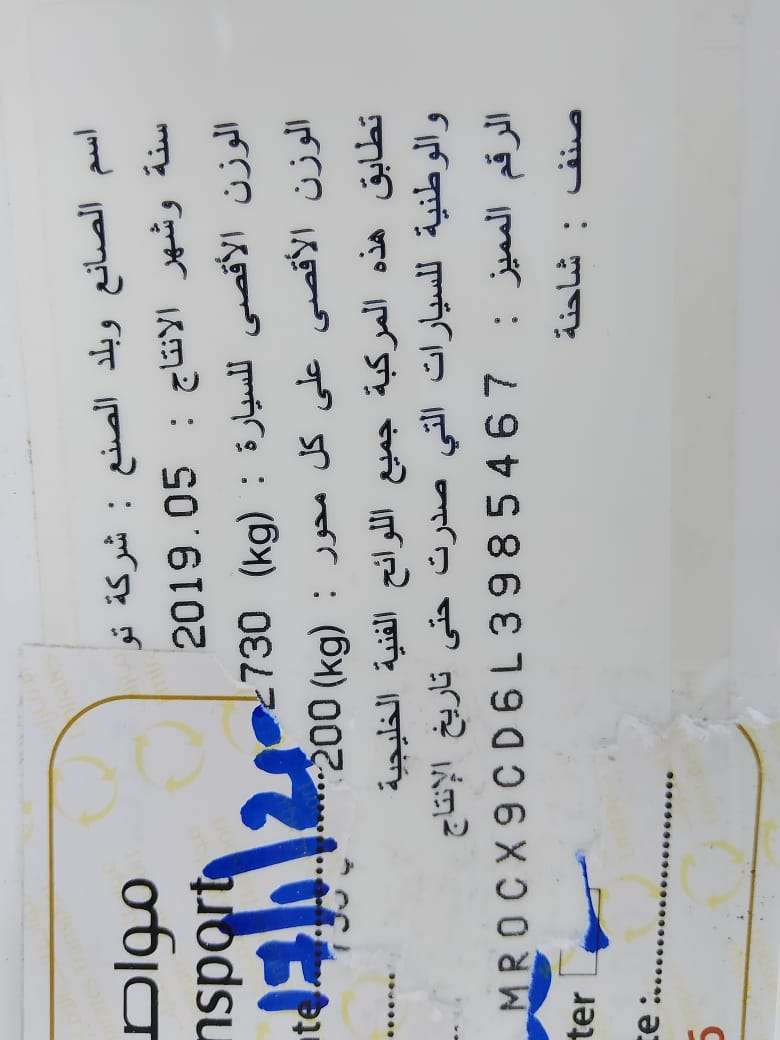 اسم الصانع وبلد الصنع : شركة تو
سنة وشهر الانتاج : 2019.05
الوزن الأقصى للسيارة : (kg) 2730
الوزن الأقصى على كل محور : (kg) 200
تطابق هذه المركبة جميع اللوائح الفنية الخليجية
والوطنية للسيارات التي صدرت حتى تاريخ الإنتاج
الرقم المميز : MR0CX9CD6L3985467
صنف : شاحنة
مواص
nsport
ate
ter
te :
5